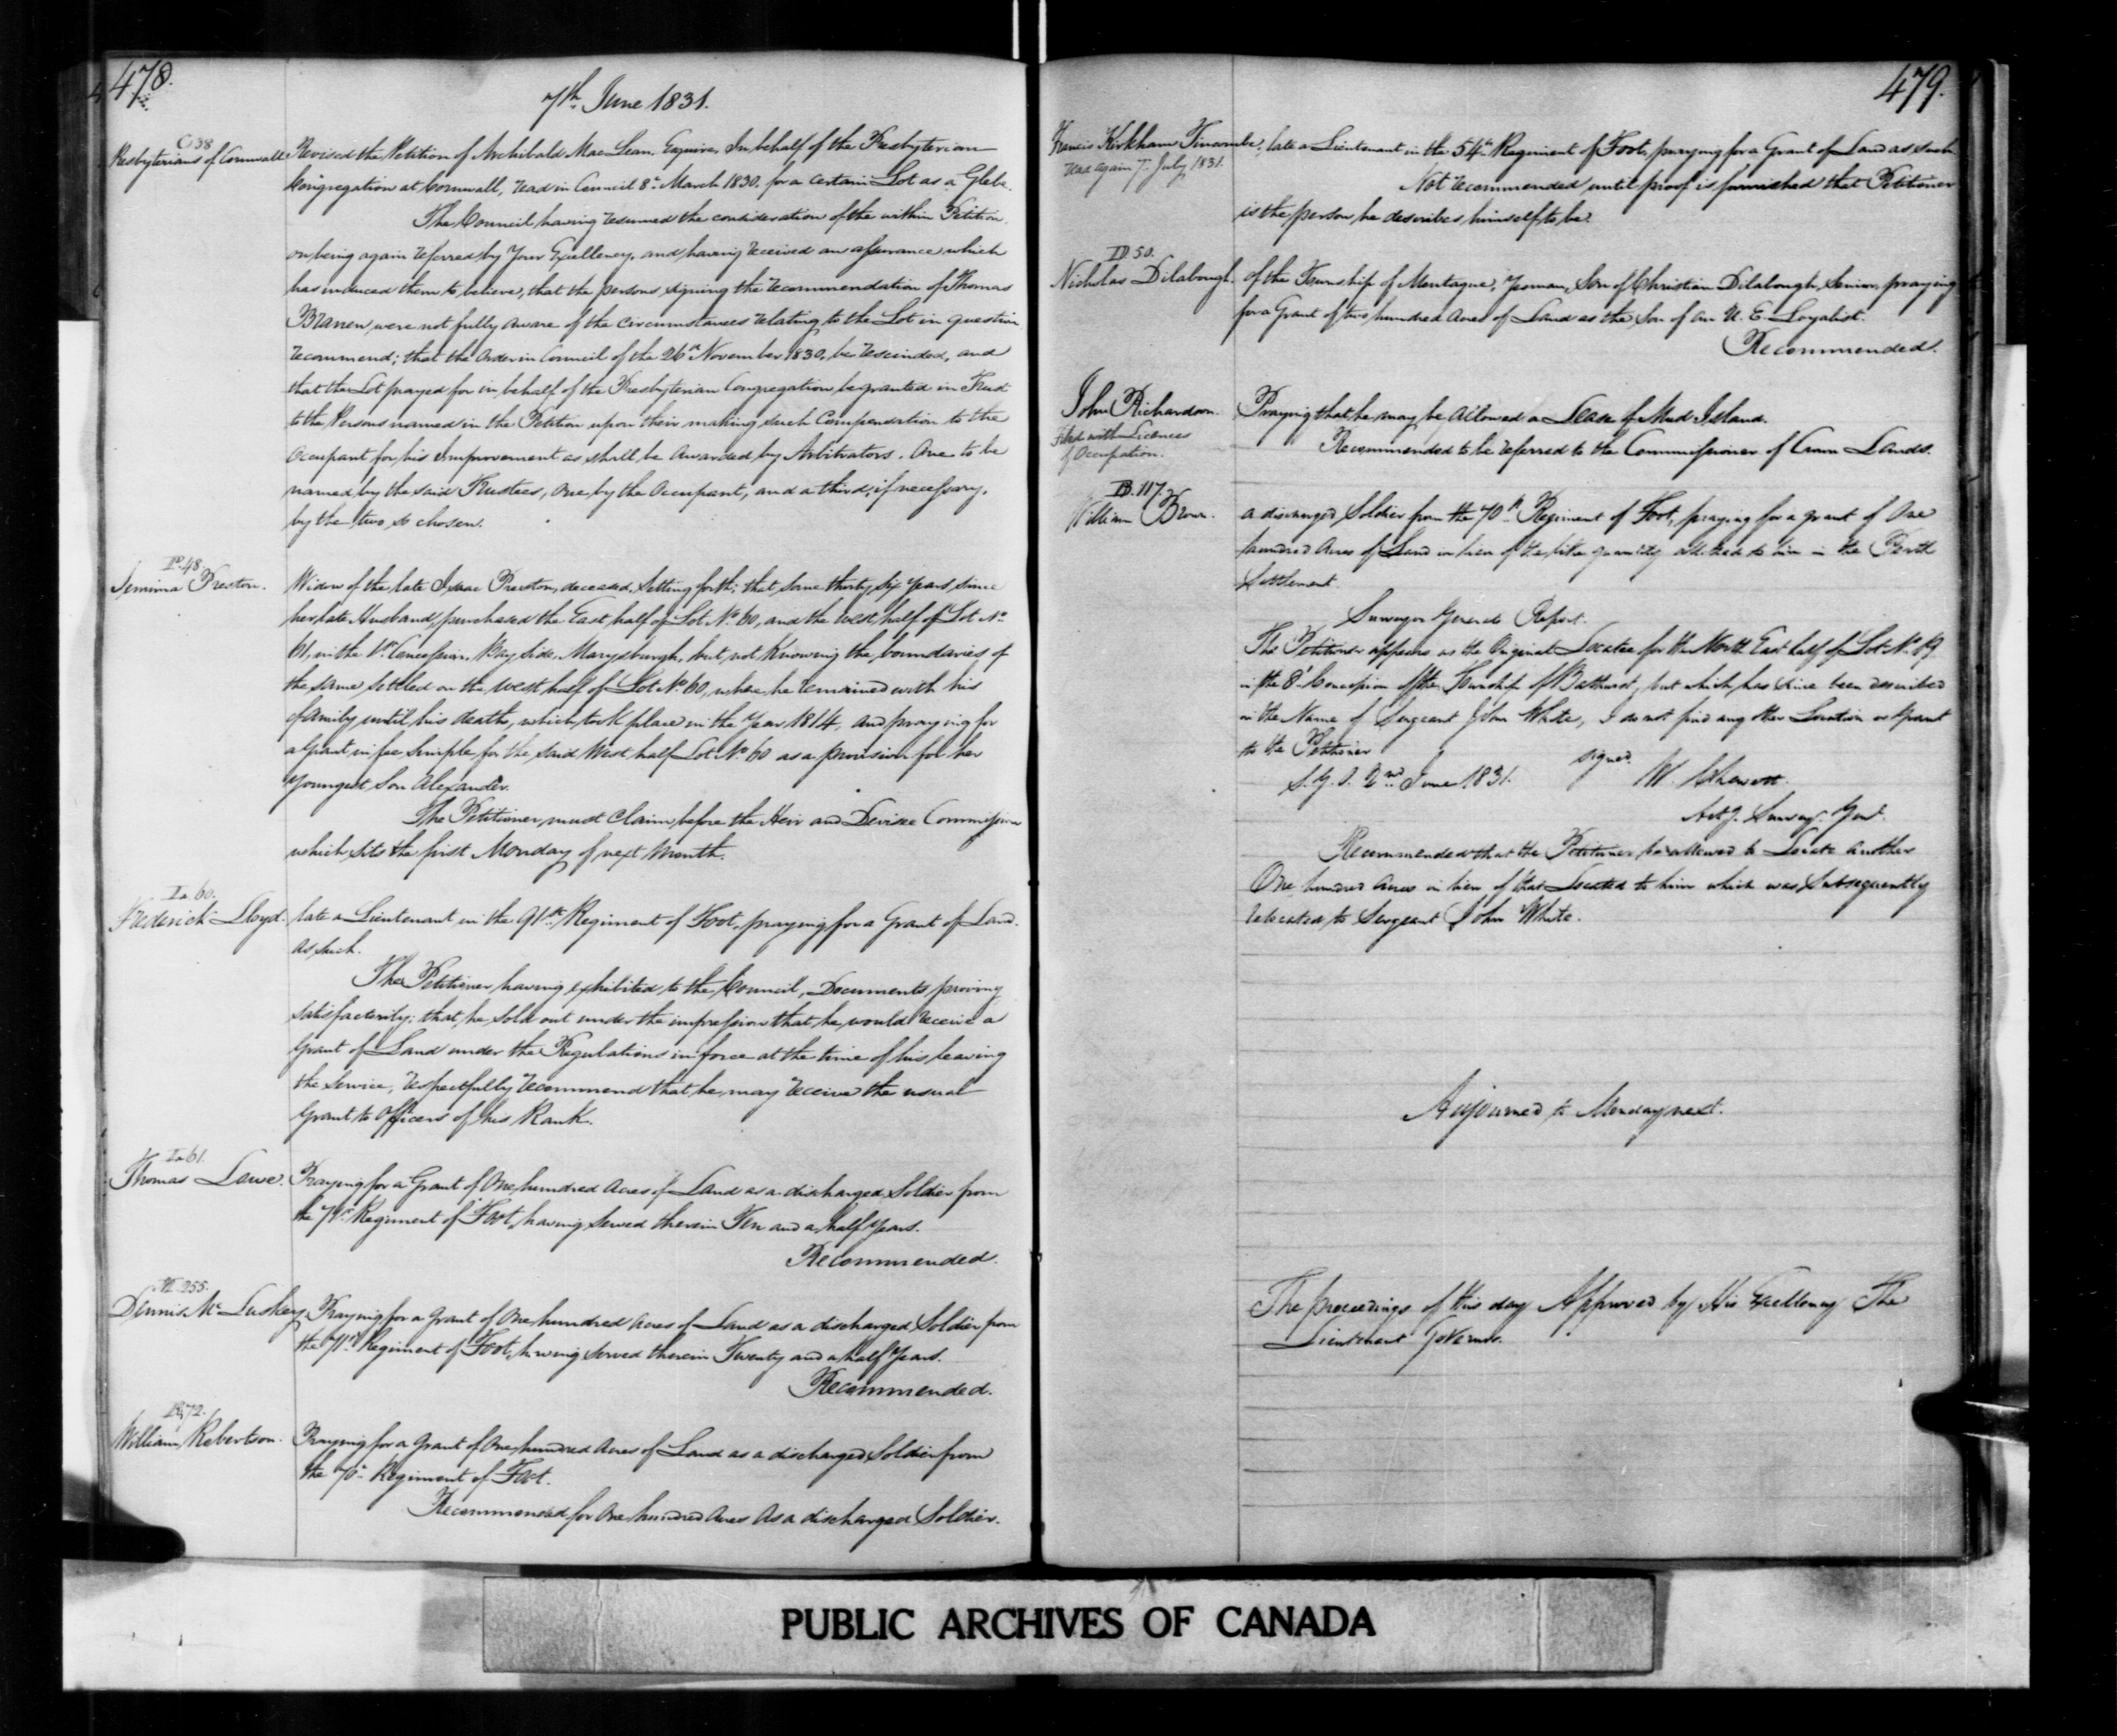 478.
7th June 1831.
C 38
Presbyterians of Cornwall
Revised the Petition of Archibald MacLean, Esquire, In behalf of the Presbyterian
Congregation at Cornwall, read in Council 8th March 1830. for a certain Lot as a Glebe.
The Council having resumed the consideration of the within Petition
on being again referred by Your Excellency, and having received an assurance which
has induced them to believe, that the persons signing the recommendation of Thomas
were not fully aware of the circumstances relating to the Lot in question
recommend; that the Order in Council of the 26th November 1830, be rescinded, and
that the Lot prayed for in behalf of the Presbyterian Congregation be granted in Trust
to the Persons named in the Petition upon their making such Compensation to the
Occupant for his improvement as shall be awarded by Arbitrators. One to be
named by the said Trustees, One by the Occupant, and a third, if necessary,
by the two so chosen.
P. 48
Jemima Preston.
Widow of the late Isaac Preston, deceased, Setting forth; that some thirty six years since
her late Husband purchased the East half of Lot No. 60, and the west half of Lot No.
61, in the 1st Concession, Bay Side, Marysburgh, but not Knowing the boundaries of
the same settled on the west half of Lot No. 60, where he remained with his
family until his death, which took place in the Year 1814, and praying for
a Grant in fee Simple, for the said West half Lot No. 60 as a provision for her
youngest Son Alexander.
The Petitioner must Claim before the Heir and Devisee Commission
which sits the first Monday of next Month.
L. 60.
Frederick Lloyd.
late a Lieutenant in the 91st Regiment of Foot, praying for a Grant of Land
as such.
The Petitioner having exhibited to the Council, Documents proving
satisfactorily; that he sold out under the impression that he would receive a
Grant of Land under the Regulations in force at the time of his leaving
the Service, respectfully recommend that he may receive the usual
Grant to Officers of his Rank.
L. 61.
Thomas Lowe.
Praying for a Grant of One hundred Acres of Land as a discharged Soldier from
the 71st Regiment of Foot, having Served therein Ten and a half Years.
Recommended.
M. 255.
Dennis McLuskey
Praying for a Grant of One hundred acres of Land as a discharged Soldier from
the 71st Regiment of Foot, having Served therein Twenty and a half Years.
Recommended.
R. 72.
William Robertson.
Praying for a Grant of One hundred Acres of Land as a discharged Soldier from
the 70th Regiment of Foot.
Recommended for One hundred Acres As a discharged Soldier.
479.
Francis Kirkham
Read again 7th July 1831.
late a Lieutenant in the 54th Regiment of Foot, praying for a Grant of Land as such
Not recommended until proof is furnished that Petitioner
is the person he describes himself to be.
D. 50.
Nicholas Dilabough.
of the Township of Montague, Yeoman, Son of Christian Dilabough, Senior, praying
for a Grant of two hundred Acres of Land as the Son of an U. E. Loyalist.
Recommended.
John Richardson.
Filed with Licences
of Occupation.
Praying that he may be allowed a Lease of Mud Island.
Recommended to be referred to the Commissioner of Crown Lands.
B. 117.
William Brown.
a discharged Soldier from the 70th Regiment of Foot, praying for a grant of One
hundred Acres of Land in lieu of the like quantity allotted to him in the Perth
Settlement.
Surveyor Generals Report.
The Petitioner appears as the Original Locatee for the North East half of Lot No. 19
in the 8th Concession of the Township of Bathurst, but which has since been described
in the Name of Sergeant John White, I do not find any other Location or Grant
to the Petitioner
signed.
S. G. O. 2nd June 1831.
W. Chewett.
Actg. Survey. Genl.
Recommended that the Petitioner be allowed to Locate another
One hundred Acres in lieu of that Located to him which was Subsequently
relocated to Sergeant John White.
Adjourned to Monday next.
The proceedings of this day Approved by His Excellency The
Lieutenant Governor.
PUBLIC ARCHIVES OF CANADA